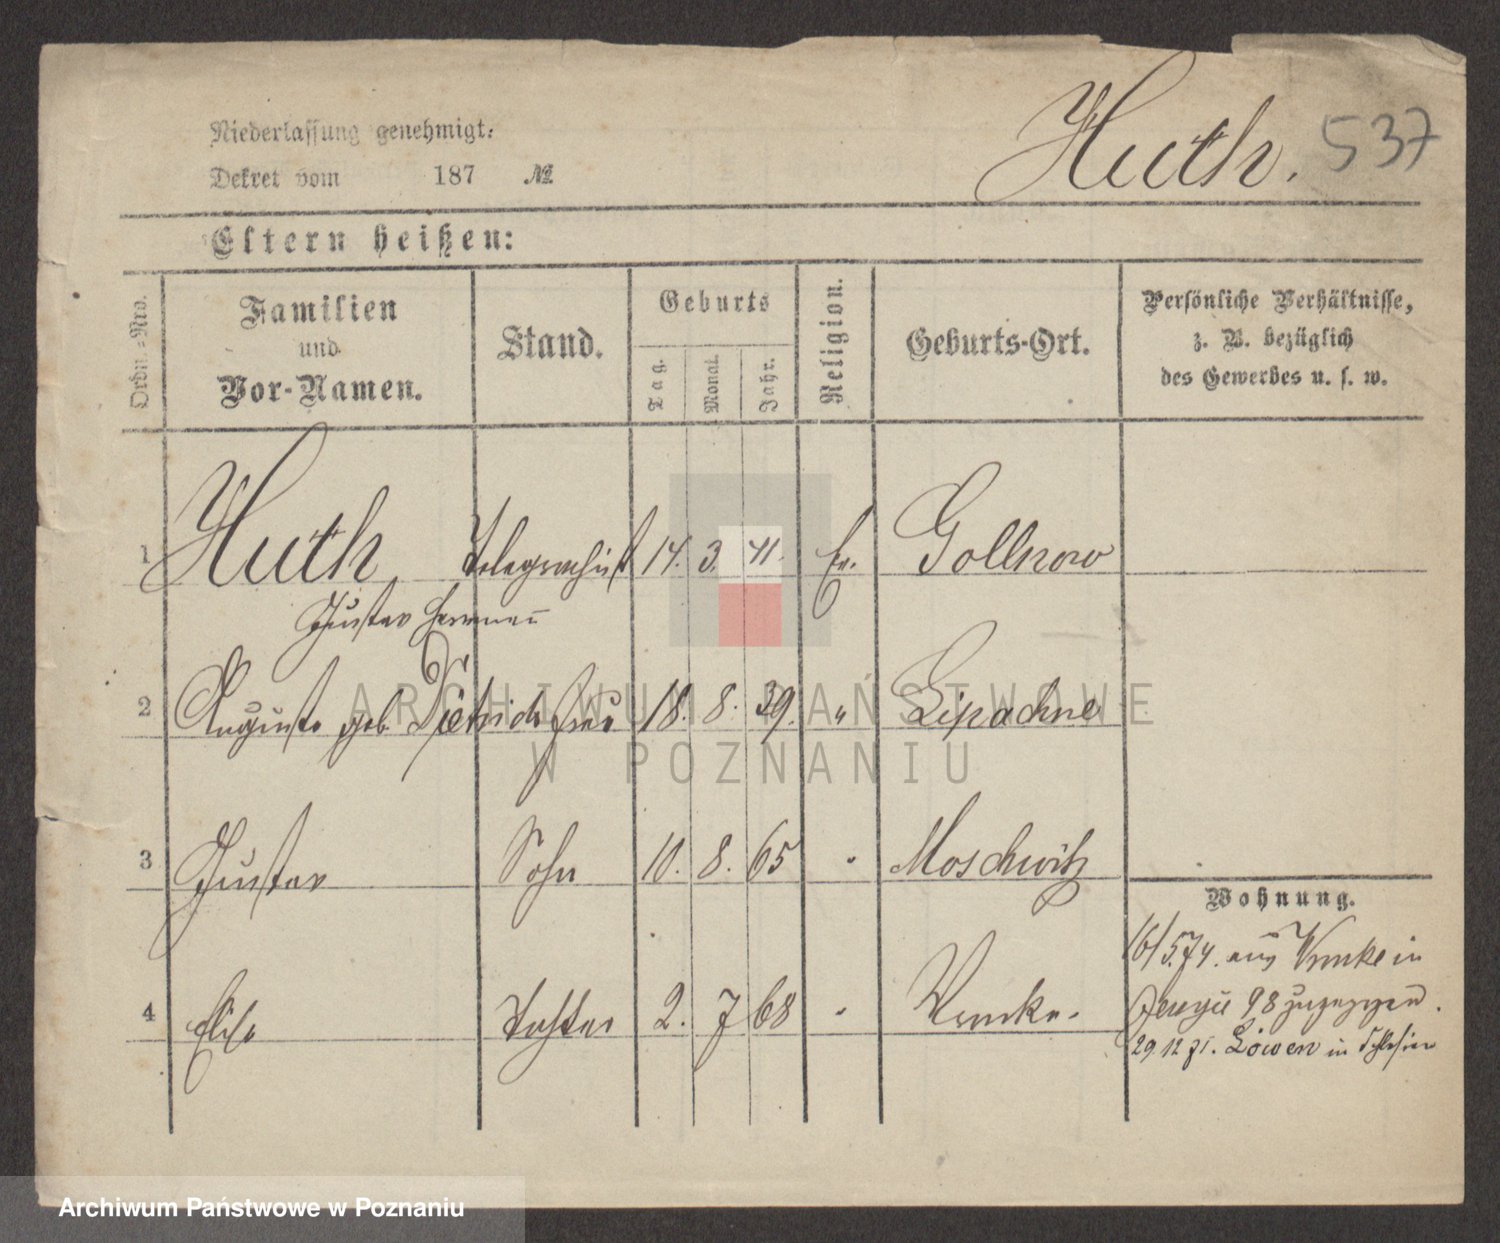 Niederlassung genehmigt:
Huth. 537
Dekret vom 187 №
Eltern heißen:
Ordn.-Nro. Familien und Vor-Namen. Stand. Geburts Tag. Monat. Jahr. Religion. Geburts-Ort. Persönliche Verhältnisse, z. B. bezüglich des Gewerbes u. s. w.
1 Huth Telegraphist 14. 3. 41. Ev. Gollnow
Gustav Herrmann
2 Auguste geb. Dietrich Frau 18. 8. 39. " Lipachne
3 Gustav Sohn 10. 8. 65 " Moschwitz
Wohnung.
16/5.74. aus Wronke in
4 Elise Tochter 2. 7 68 " Wronke.
98 zugezogen.
29 12 71. Löwen in Schlesien
ARCHIWUM PAŃSTWOWE
W POZNANIU
Archiwum Państwowe w Poznaniu